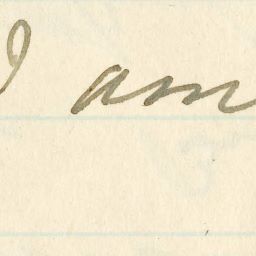 I am